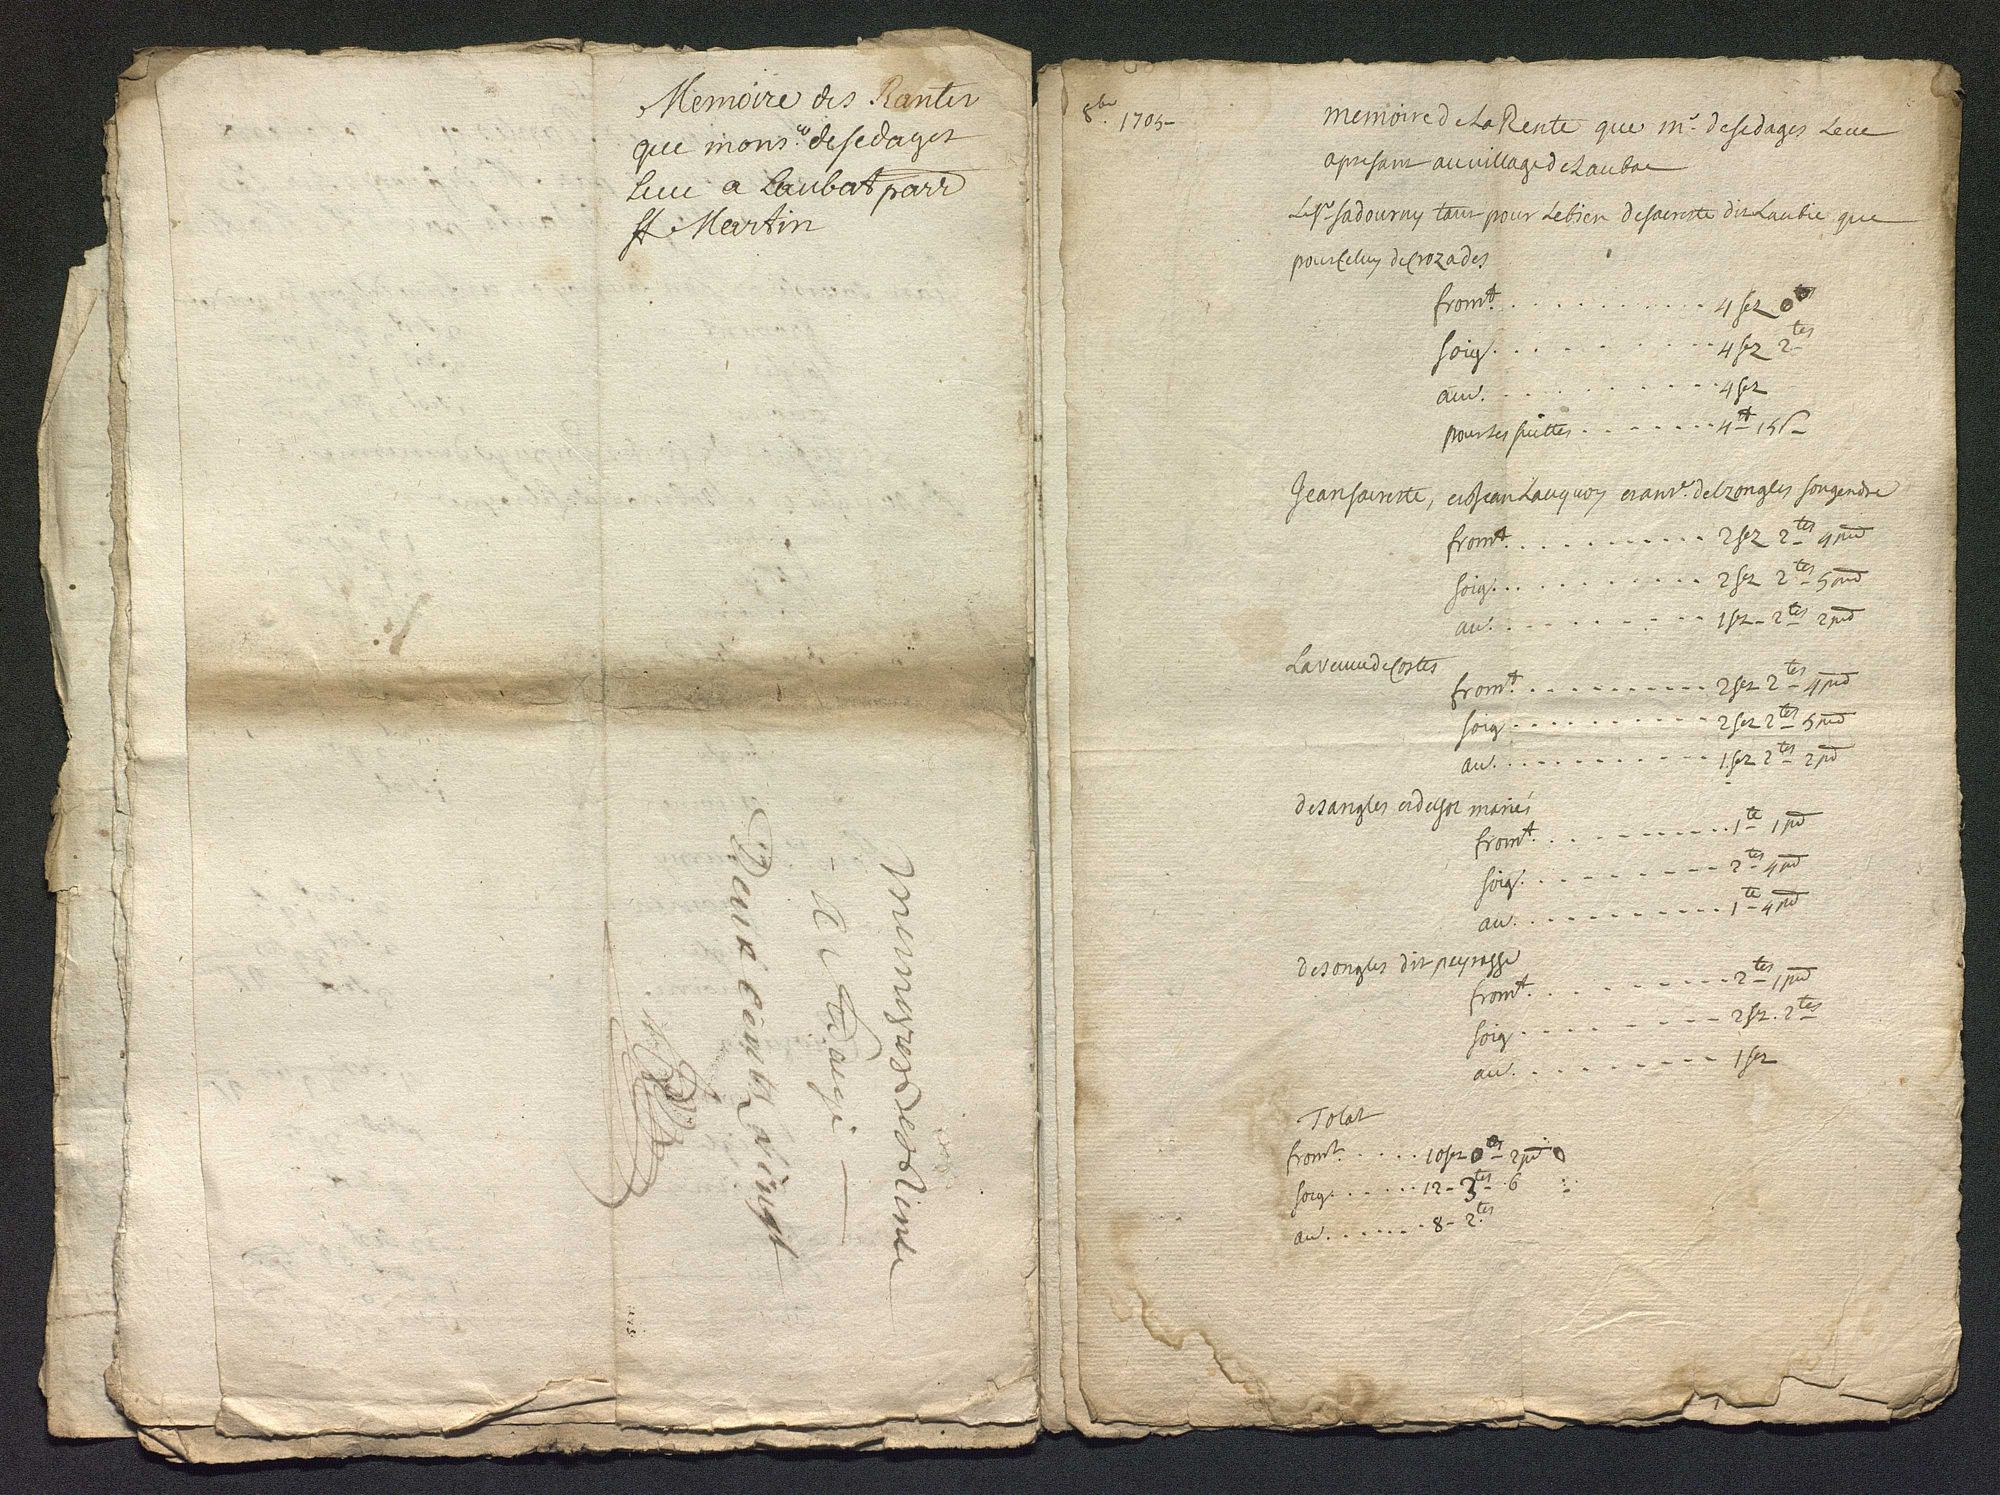 Memoire des Rantes
que monsr desedages
leue a Laubat parr
st Martin
Deux cents vingt
8bre 1705
memoire de La Rente que mr desedages Leue
apresant au village de Laubac
Le sr sadourny tant pour Le bien desaireste dit Laubie que
pour Celuy de Crozades
fromt. . . . . . . . . . . 4 sez 0tes
soig. . . . . . . . . . 4 sez 2tes
au. . . . . . . . . . 4 sez
pour Les suittes . . . . . . 4tt 15s
Jean saireste, et Jean Lauquoy et ant. delzongles son gendre
fromt. . . . . . . . . . . 2 sez 2tes 4pnd
soig. . . . . . . . . . . 2 sez 2tes 5pnd
au. . . . . . . . . . 1 sez 2tes 2pnd
La veuue de Costes
fromt. . . . . . . . . . . 2 sez 2tes 4pnd
soig . . . . . . . . . . . 2 sez 2tes 5pnd
au. . . . . . . . . . . 1 sez 2tes 2pd
desangles et delsol mariés
fromt. . . . . . . . . . 1te 1pd
soig. . . . . . . . . . 2tes 4pd
au. . . . . . . . . . 1te 4pnd
desongles dit peyrasse
fromt. . . . . . . . . . 2tes 1pnd
soig . . . . . . . . . . 2 sez. 2tes
au. . . . . . . . . . 1 sez
Totat
fromt. . . . . 10 sez 0tes 2pnd
soig. . . . . . 12 - 3tes - 6
au. . . . . . . 8 - 2tes